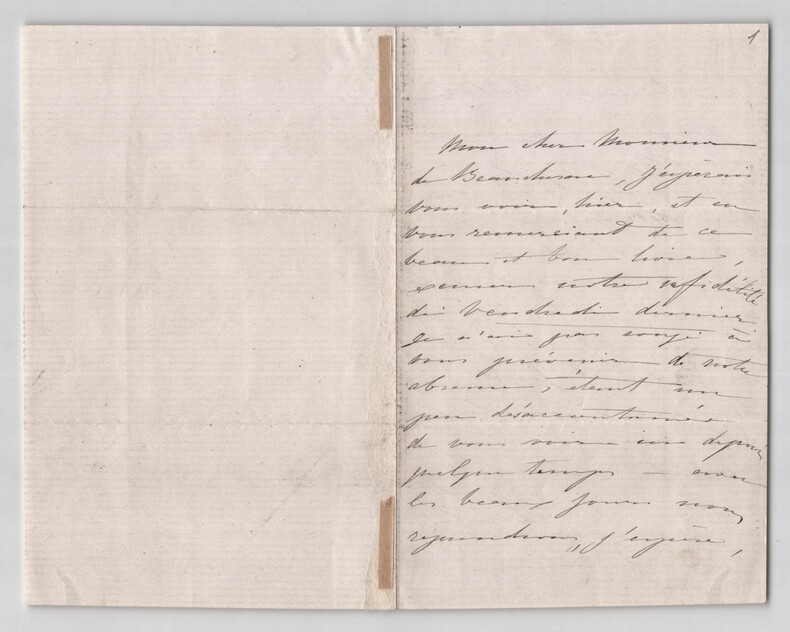 1
Mon cher Monsieur
de Beauchesne, j'espérais
vous voir, hier, et en
vous remerciant de ce
beau et bon livre,
excuser notre infidélité
de Vendredi dernier
Je n'ai pas songé à
vous prévenir de notre
absence, étant un
peu désaccoutumée
de vous voir ici depuis
quelque temps — avec
les beaux jours nous
reprendrons, j'espère,